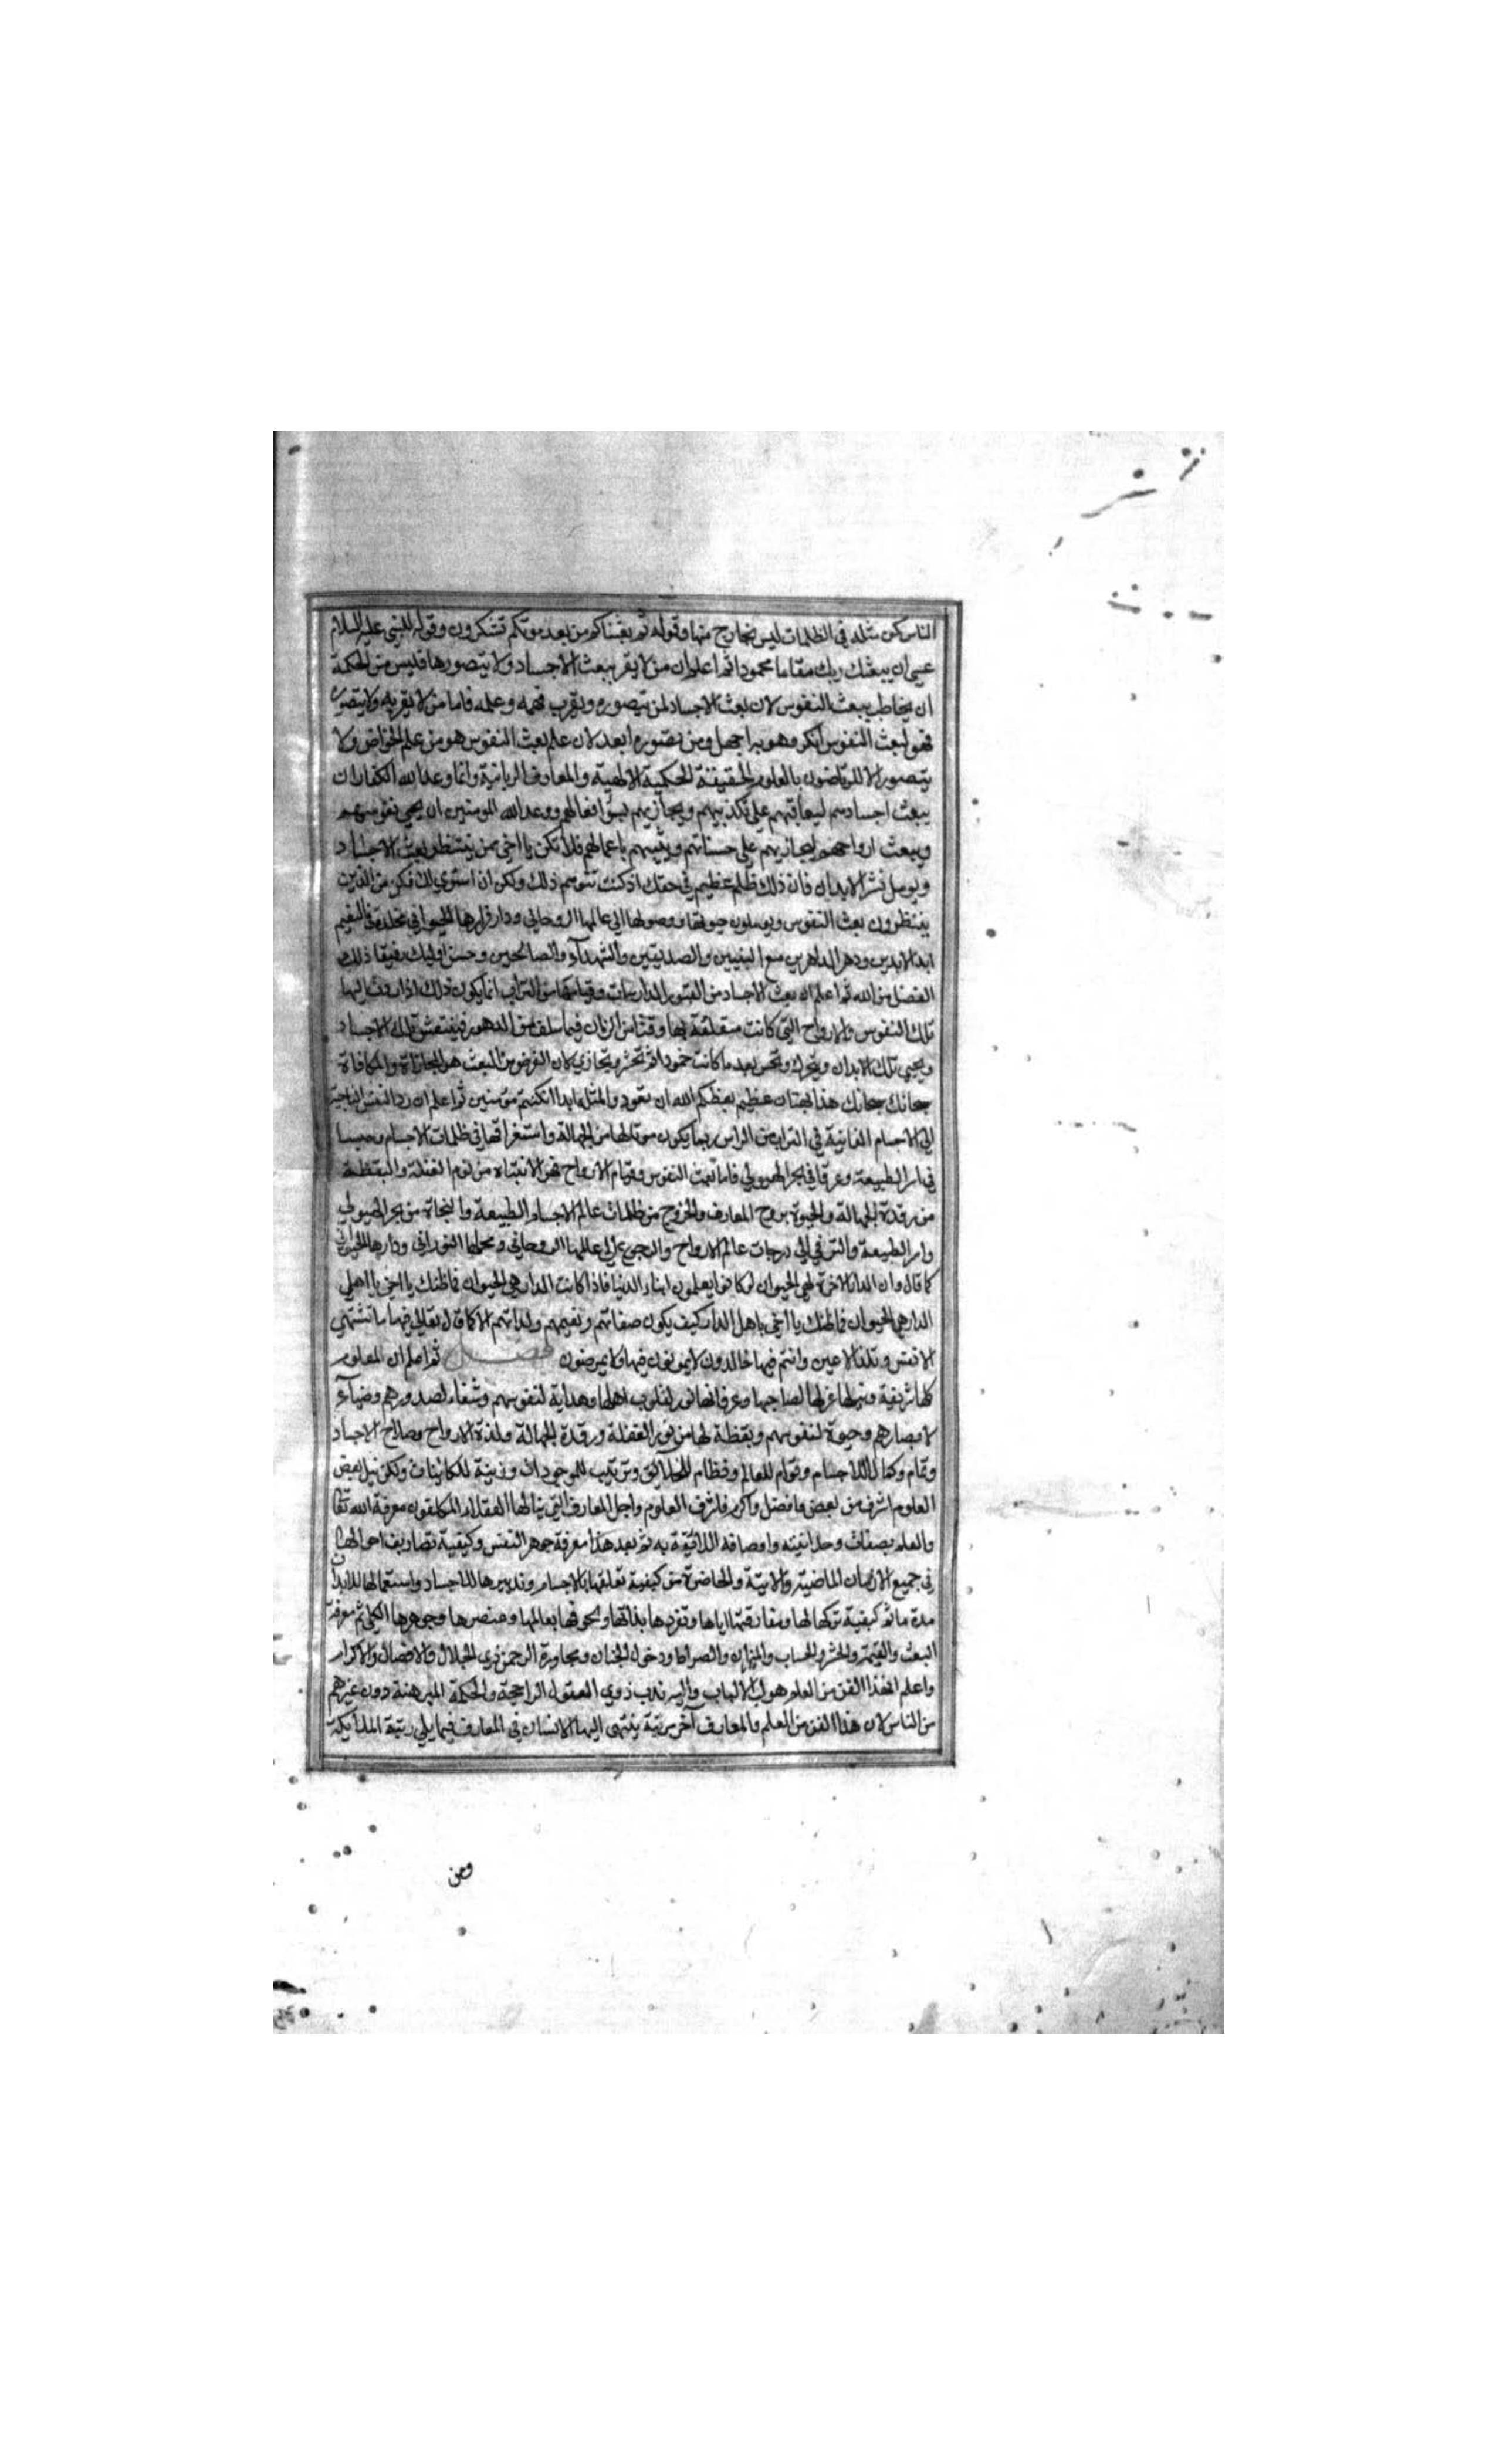 الناس كمن مثله في الظلمات ليس بخارج منها وقوله ثم بعثناكم من بعد موتكم تشكرون وقوله للنبي عليه السلام
عسى ان يبعثك ربك مقاما محمودا ثم اعلم ان من لا يقر ببعث الاجساد ولا يتصورها فليس من الحكمة
ان يخاطب ببعث النفوس لان بعث الاجساد لمن يتصوره ويقرب فهمه وعلمه فاما من لا يقر به ولا يتصوره
فهو لبعث النفوس انكر وهو به اجهل ومن تصوره ابعد لان علم بعث النفوس هو من علم الخواص ولا
يتصوره الا المرتاضون بالعلوم الحقيقة الحكمية الالهية والمعارف الربانية وانما وعد الله الكفار ان
يبعث اجسادهم ليعاقبهم على تكذيبهم ويجازيهم بسوٓء افعالهم ووعد الله المومنين ان يحيى نفوسهم
ويبعث ارواحهم ليجازيهم على حسناتهم ويثيبهم باعمالهم فلا تكن يا اخي ممن ينتظر بعث الاجساد
ويومل نشر الابدان فان ذلك ظلم عظيم في حقك اذ كنت تتوهم ذلك ولكن ان استوى لك فكن من الذين
ينتظرون بعث النفوس ويوملون حيوتها ووصولها الى عالمها الروحاني ودار قرارها الحيواني مخلدة في النعيم
ابد الابدين ودهر الداهرين مع النبيين والصديقين والشهدآء والصالحين وحسن اوليك رفيقا ذلك
الفضل من الله ثم اعلم ان بعث الاجساد من القبور الدارسات وقيامها من التراب انما يكون ذلك اذا ردت اليها
تلك النفوس والارواح التي كانت متعلقة بها وقتا من الزمان فيما سلف من الدهور فينتعش تلك الاجساد
ويحيى تلك الابدان ويتحرك وتحس بعد ما كانت خمودا ثم تحشر ويجازي كان الغرض من البعث هو المجازاة والمكافاة
سبحانك سبحانك هذا بهتان عظيم يعظكم الله ان تعود والمثله ابدا ان كنتم مؤمنين ثم اعلم ان رد النفس الناجية
الى الاجسام الفانية في التراب من الراس ربما يكون موتا لها من الجهالة واستغراقها في ظلمات الاجسام وحبسا
في اسر الطبيعة وغرقا في بحر الهيولي فاما بعث النفوس وقيام الارواح فهو الانتباه من نوم الغفلة واليقظة
من رقدة الجهالة والحيوة بروح المعارف والخروج من ظلمات عالم الاجساد الطبيعة والنجاة من بحر الهيولي
واسر الطبيعة والترقي الى درجات عالم الارواح والرجوع الى عالمها الروحاني ومحلها النوراني ودارها الحيوان
كما قال وان الدار الاخرة لهي الحيوان لو كانوا يعلمون ابناء الدنيا فاذا كانت الدار هي الحيوان فما ظنك يا اخي يا اهلي
الدار هي الحيوان فما ظنك يا اخي باهل الدار كيف يكون صفاتهم ونعيمهم ولذاتهم الا كما قال تعالى فيها ما تشتهي
الانفس وتلذ الاعين وانتم فيها خالدون لا يموتون فيها ولا يمرضون فصل ثم اعلم ان العلوم
كلها شريفة ونيلها عز لصاحبها وعرفانها نور لقلوب اهلها وهداية لنفوسهم وشفاء لصدورهم وضياء
لابصارهم وحيوة لنفوسهم ويقظة لها من نوم الغفلة ورقدة الجهالة ولذة الارواح وصلاح الاجساد
وتمام وكمال للاجسام وقوام للعالم ونظام للخلائق وترتيب للموجودات وزينة للكائينات ولكن نيل بعض
العلوم اشرف من بعض وافضل واكرم فاشرف العلوم واجل المعارف التي ينالها العقلاء المكلفون معرفة الله تعالى
والعلم بصفات وحدانيته واوصافه اللائقة به ثم بعد هذا معرفة جوهر النفس وكيفية تصاريف احوالها
في جميع الازمان الماضية والاتية والحاضرة من كيفية تعلقها بالاجسام وتدبيرها للاجساد واستعمالها للابدان
مدة ما ثم كيفية تركها لها ومفارقتها اياها وتفردها بذاتها ولحوقها بعالمها وعنصرها وجوهرها الكلي ثم معرفة
البعث والقيمة والحشر والحساب والميزان والصراط ودخول الجنان ومجاورة الرحمن ذي الجلال والافضال والاكرام
واعلم ان هذا الفن من العلم هو لب الالباب واليه ندب ذوي العقول الراجحة والحكمة المبرهنة دون غيرهم
من الناس لان هذا الفن من العلم والمعارف آخر مرتبة ينتهى اليها الانسان في المعارف فيما يلي رتبة الملائيكة
ومن